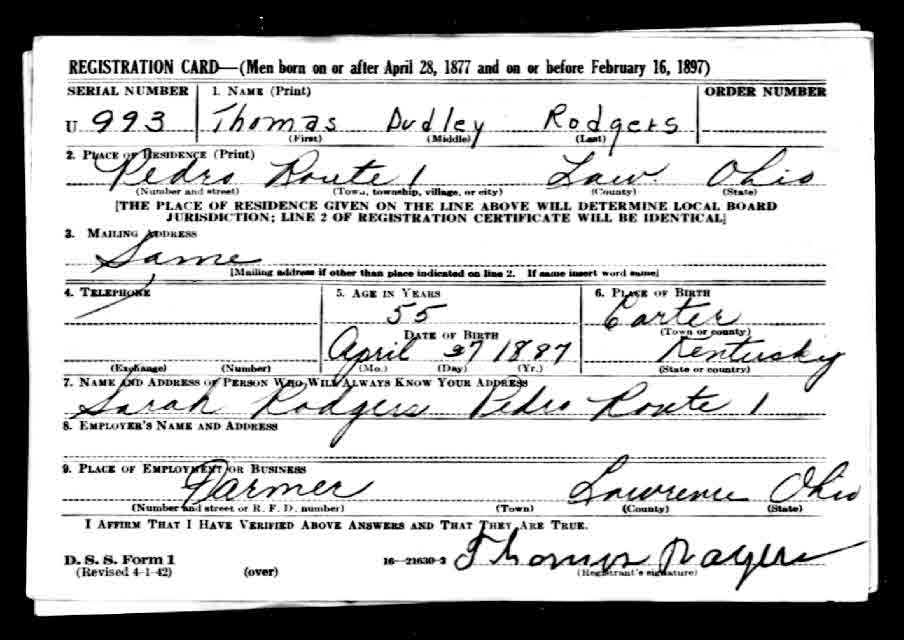 REGISTRATION CARD—(Men born on or after April 28, 1877 and on or before February 16, 1897)
SERIAL NUMBER 1. NAME (Print) ORDER NUMBER
U 993 Thomas Dudley Rodgers
(First) (Middle) (Last)
2. PLACE OF RESIDENCE (Print)
Pedro Route 1 Law. Ohio
(Number and street) (Town, township, village, or city) (County) (State)
[THE PLACE OF RESIDENCE GIVEN ON THE LINE ABOVE WILL DETERMINE LOCAL BOARD
JURISDICTION; LINE 2 OF REGISTRATION CERTIFICATE WILL BE IDENTICAL]
3. MAILING ADDRESS
Same
[Mailing address if other than place indicated on line 2. If same insert word same]
4. TELEPHONE 5. AGE IN YEARS 6. PLACE OF BIRTH
55 Carter
DATE OF BIRTH (Town or county)
April 27 1887 Kentucky
(Exchange) (Number) (Mo.) (Day) (Yr.) (State or country)
7. NAME AND ADDRESS OF PERSON WHO WILL ALWAYS KNOW YOUR ADDRESS
Sarah Rodgers Pedro Route 1
8. EMPLOYER'S NAME AND ADDRESS
9. PLACE OF EMPLOYMENT OR BUSINESS
Farmer Lawrence Ohio
(Number and street or R. F. D. number) (Town) (County) (State)
I AFFIRM THAT I HAVE VERIFIED ABOVE ANSWERS AND THAT THEY ARE TRUE.
D. S. S. Form 1
(Revised 4-1-42) (over) 16—21630-2 Thomas
(Registrant's signature)